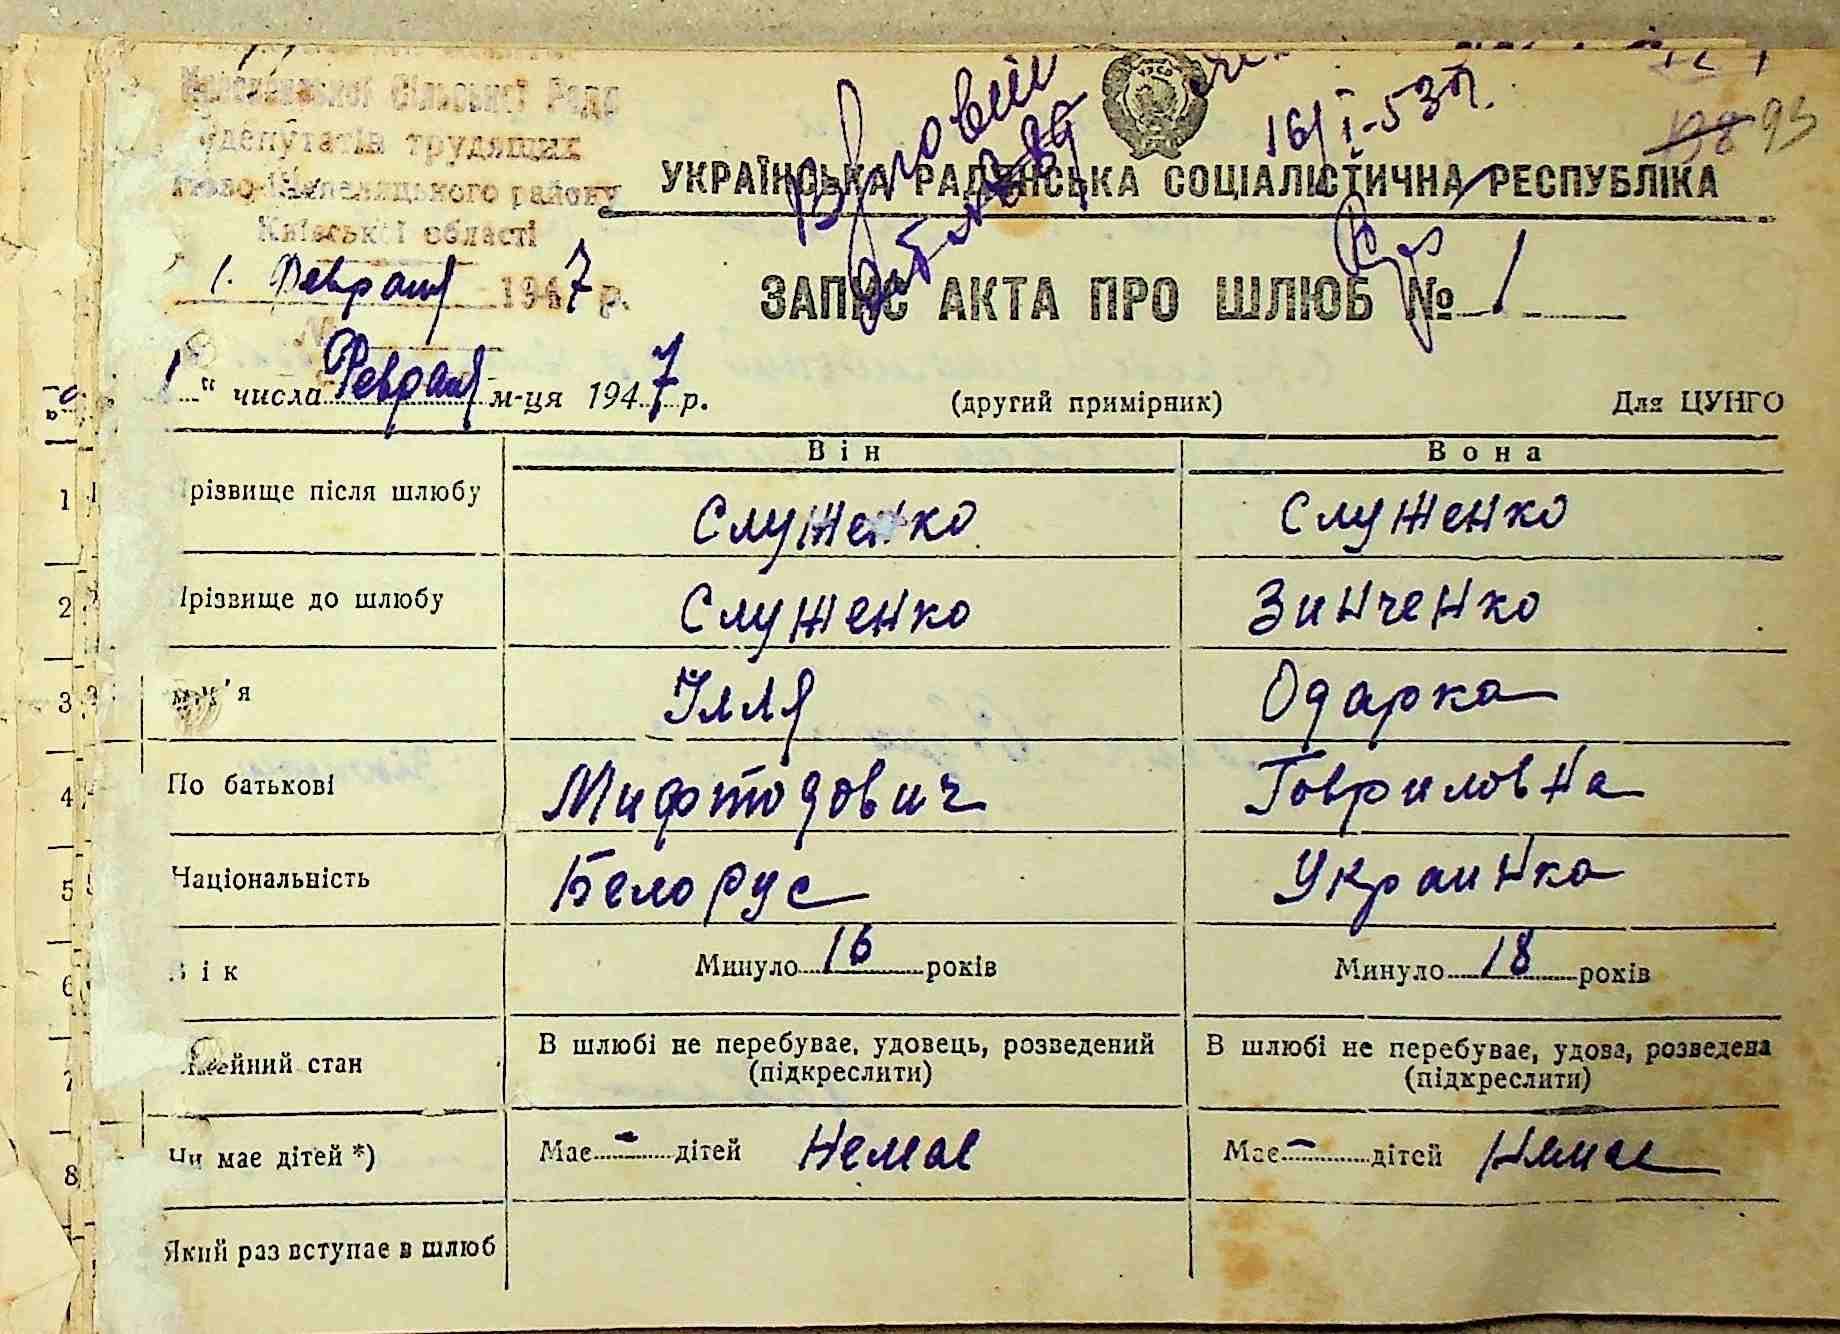 Сільської Ради
депутатів трудящих
Ново-Шепелицького району
Київської області
1. Февраля 1947 р.
№
16/I-53 р.
93
УКРАЇНСЬКА РАДЯНСЬКА СОЦІАЛІСТИЧНА РЕСПУБЛІКА
ЗАПИС АКТА ПРО ШЛЮБ № 1
1 " числа Февраля м-ця 1947 р. (другий примірник) Для ЦУНГО
Він Вона
1 різвище після шлюбу Служенко Служенко
2 різвище до шлюбу Служенко Зинченко
3 м'я Ілля Одарка
4 По батькові Мифтодович Говриловна
5 Національність Белорус Украинка
6 Вік Минуло 16 років Минуло 18 років
7 мейний стан В шлюбі не перебуває, удовець, розведений (підкреслити) В шлюбі не перебуває, удова, розведена (підкреслити)
8 Чи має дітей *) Має - дітей Немає Має - дітей Немає
Який раз вступає в шлюб